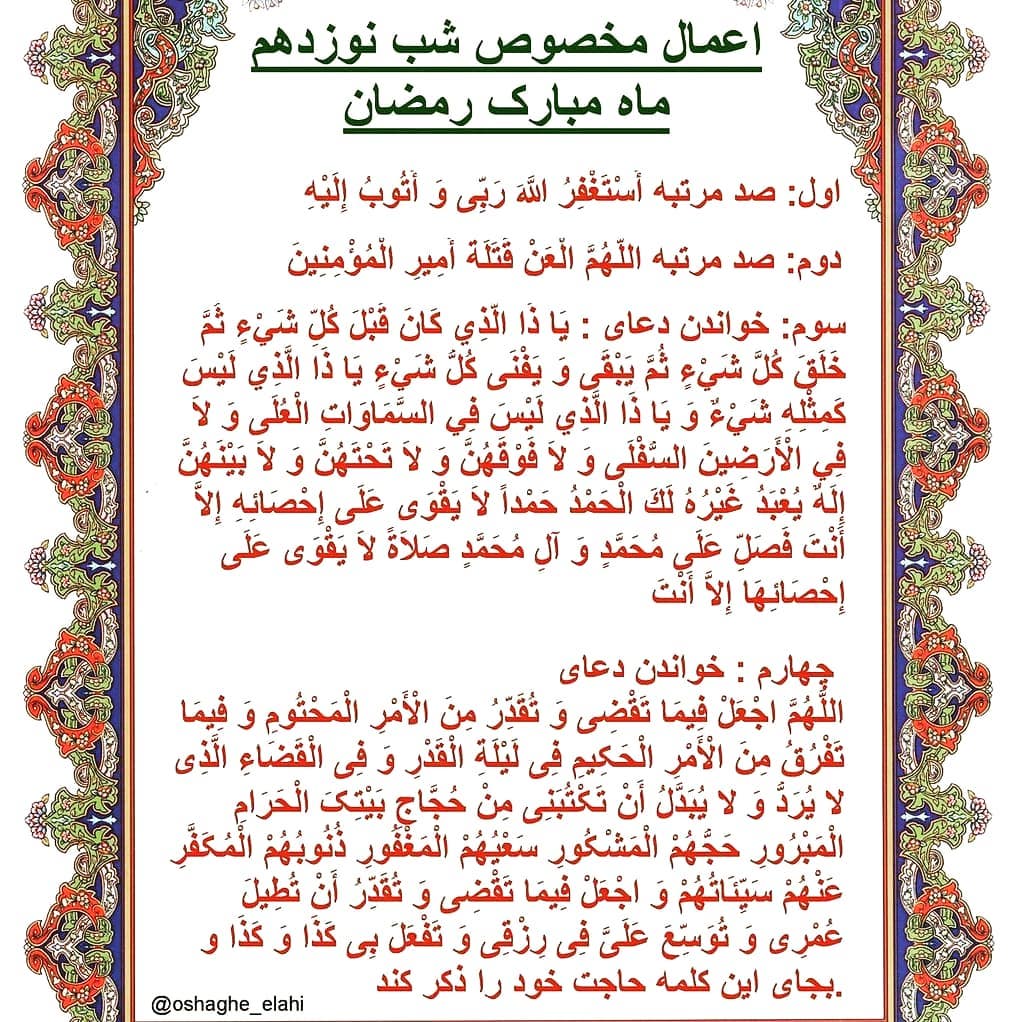 اعمال مخصوص شب نوزدهم
ماه مبارک رمضان
اول: صد مرتبه أَسْتَغْفِرُ اللَّهَ رَبِّی وَ أَتُوبُ إِلَيْهِ
دوم: صد مرتبه اللَّهُمَّ الْعَنْ قَتَلَةَ أَمِيرِ الْمُؤْمِنِينَ
سوم: خواندن دعای : يَا ذَا الَّذِي كَانَ قَبْلَ كُلِّ شَيْءٍ ثُمَّ
خَلَقَ كُلَّ شَيْءٍ ثُمَّ يَبْقَى وَ يَفْنَى كُلُّ شَيْءٍ يَا ذَا الَّذِي لَيْسَ
كَمِثْلِهِ شَيْءٌ وَ يَا ذَا الَّذِي لَيْسَ فِي السَّمَاوَاتِ الْعُلَى وَ لاَ
فِي الْأَرَضِينَ السُّفْلَى وَ لاَ فَوْقَهُنَّ وَ لاَ تَحْتَهُنَّ وَ لاَ بَيْنَهُنَّ
إِلَهٌ يُعْبَدُ غَيْرُهُ لَكَ الْحَمْدُ حَمْداً لاَ يَقْوَى عَلَى إِحْصَائِهِ إِلاَّ
أَنْتَ فَصَلِّ عَلَى مُحَمَّدٍ وَ آلِ مُحَمَّدٍ صَلاَةً لاَ يَقْوَى عَلَى
إِحْصَائِهَا إِلاَّ أَنْتَ
چهارم : خواندن دعای
اللَّهُمَّ اجْعَلْ فِيمَا تَقْضِی وَ تُقَدِّرُ مِنَ الْأَمْرِ الْمَحْتُومِ وَ فِيمَا
تَفْرُقُ مِنَ الْأَمْرِ الْحَكِيمِ فِی لَيْلَةِ الْقَدْرِ وَ فِی الْقَضَاءِ الَّذِی
لا يُرَدُّ وَ لا يُبَدَّلُ أَنْ تَكْتُبَنِی مِنْ حُجَّاجِ بَيْتِکَ الْحَرَامِ
الْمَبْرُورِ حَجُّهُمْ الْمَشْكُورِ سَعْيُهُمْ الْمَغْفُورِ ذُنُوبُهُمْ الْمُكَفَّرِ
عَنْهُمْ سَيِّئَاتُهُمْ وَ اجْعَلْ فِيمَا تَقْضِی وَ تُقَدِّرُ أَنْ تُطِيلَ
عُمْرِی وَ تُوَسِّعَ عَلَیَّ فِی رِزْقِی وَ تَفْعَلَ بِی كَذَا وَ كَذَا و
.بجای این کلمه حاجت خود را ذکر کند
@oshaghe_elahi